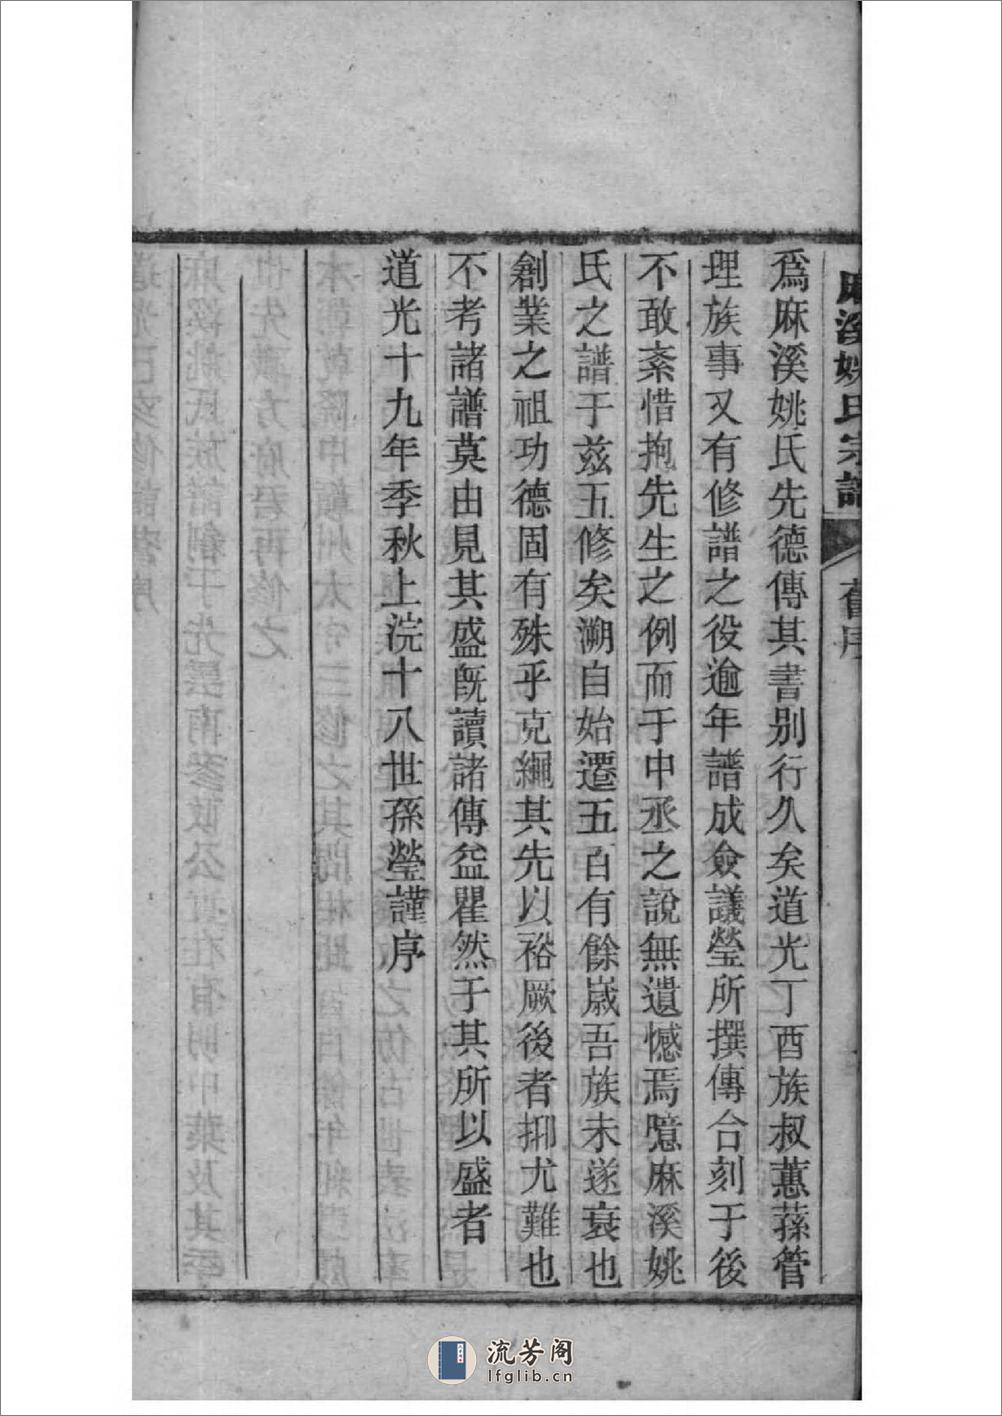 麻溪姚氏宗譜
舊序
爲麻溪姚氏先德傳其書別行久矣道光丁酉族叔蕙蓀管
理族事又有修譜之役逾年譜成僉議瑩所撰傳合刻于後
不敢紊惜抱先生之例而于中丞之說無遺憾焉臆麻溪姚
氏之譜于茲五修矣溯自始遷五百有餘嵗吾族未遂衰也
創業之祖功德固有殊乎克繩其先以裕厥後者抑尤難也
不考諸譜莫由見其盛旣讀諸傳益瞿然于其所以盛者
道光十九年季秋上浣十八世孫瑩謹序
流芳阁
lfglib.cn